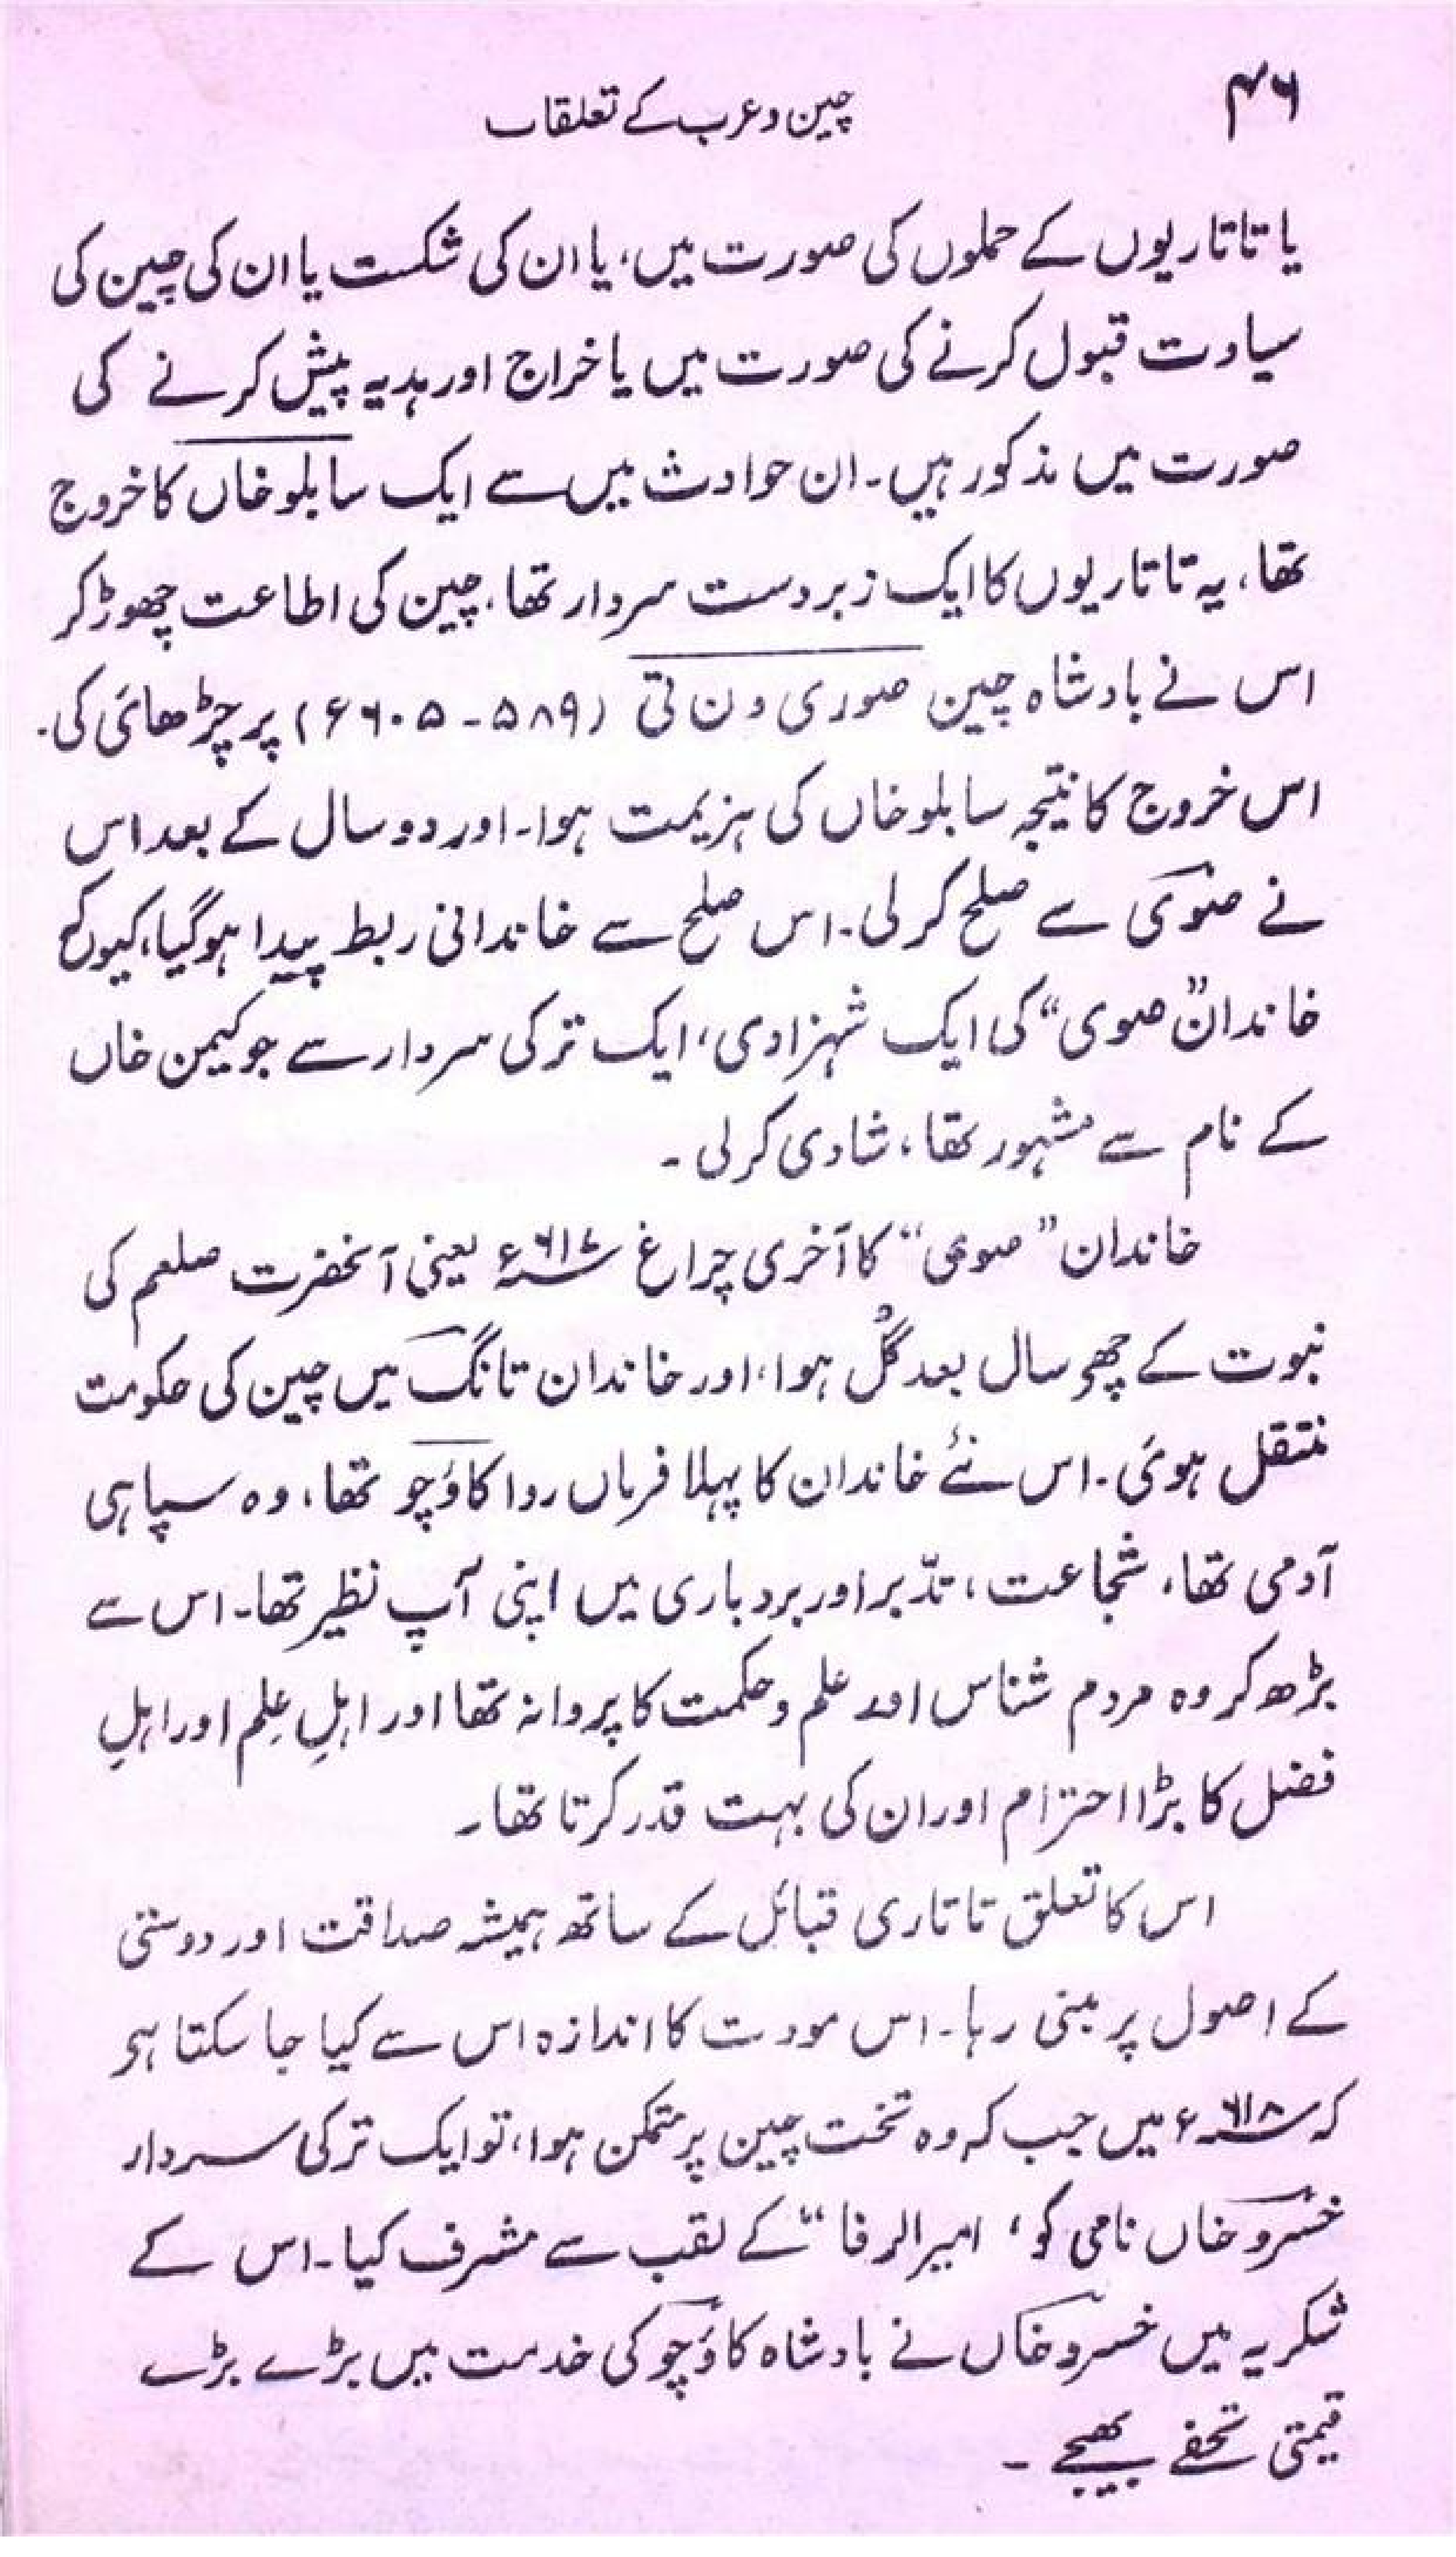 ۴۶
چین و عرب کے تعلقات
یا تاتاریوں کے حملوں کی صورت میں، یا ان کی شکست یا ان کی چین کی
سیادت قبول کرنے کی صورت میں یا خراج اور ہدیہ پیش کرنے کی
صورت میں مذکور ہیں۔ ان حوادث میں سے ایک سابلو خاں کا خروج
تھا، یہ تاتاریوں کا ایک زبردست سردار تھا، چین کی اطاعت چھوڑ کر
اس نے بادشاہ چین صوری ون تی (۵۸۹ - ۶۶۰۵) پر چڑھائی کی۔
اس خروج کا نتیجہ سابلو خاں کی ہزیمت ہوا۔ اور دو سال کے بعد اس
نے صوی سے صلح کر لی۔ اس صلح سے خاندانی ربط پیدا ہوگیا، کیوں کہ
خاندان "صوی" کی ایک شہزادی، ایک ترکی سردار سے جو کیمن خاں
کے نام سے مشہور تھا، شادی کر لی۔
خاندان "صوی" کا آخری چراغ ۶۱۷ء یعنی آنحضرت صلعم کی
نبوت کے چھ سال بعد گُل ہوا، اور خاندان تانگ میں چین کی حکومت
منتقل ہوئی۔ اس نئے خاندان کا پہلا فرماں روا کاؤچو تھا، وہ سپاہی
آدمی تھا، شجاعت، تدّبر اور بردباری میں اپنی آپ نظیر تھا۔ اس سے
بڑھ کر وہ مردم شناس اور علم و حکمت کا پروانہ تھا اور اہلِ عِلم اور اہلِ
فضل کا بڑا احترام اور ان کی بہت قدر کرتا تھا۔
اس کا تعلق تاتاری قبائل کے ساتھ ہمیشہ صداقت اور دوستی
کے اصول پر مبنی رہا۔ اس مودت کا اندازہ اس سے کیا جا سکتا ہو
کہ ۶۱۸ء میں جب کہ وہ تخت چین پر متمکن ہوا، تو ایک ترکی سردار
خسرو خاں نامی کو ‘ امیر الرفا “ کے لقب سے مشرف کیا۔ اس کے
شکریہ میں خسرو خاں نے بادشاہ کاؤچو کی خدمت میں بڑے بڑے
قیمتی تحفے بھیجے۔